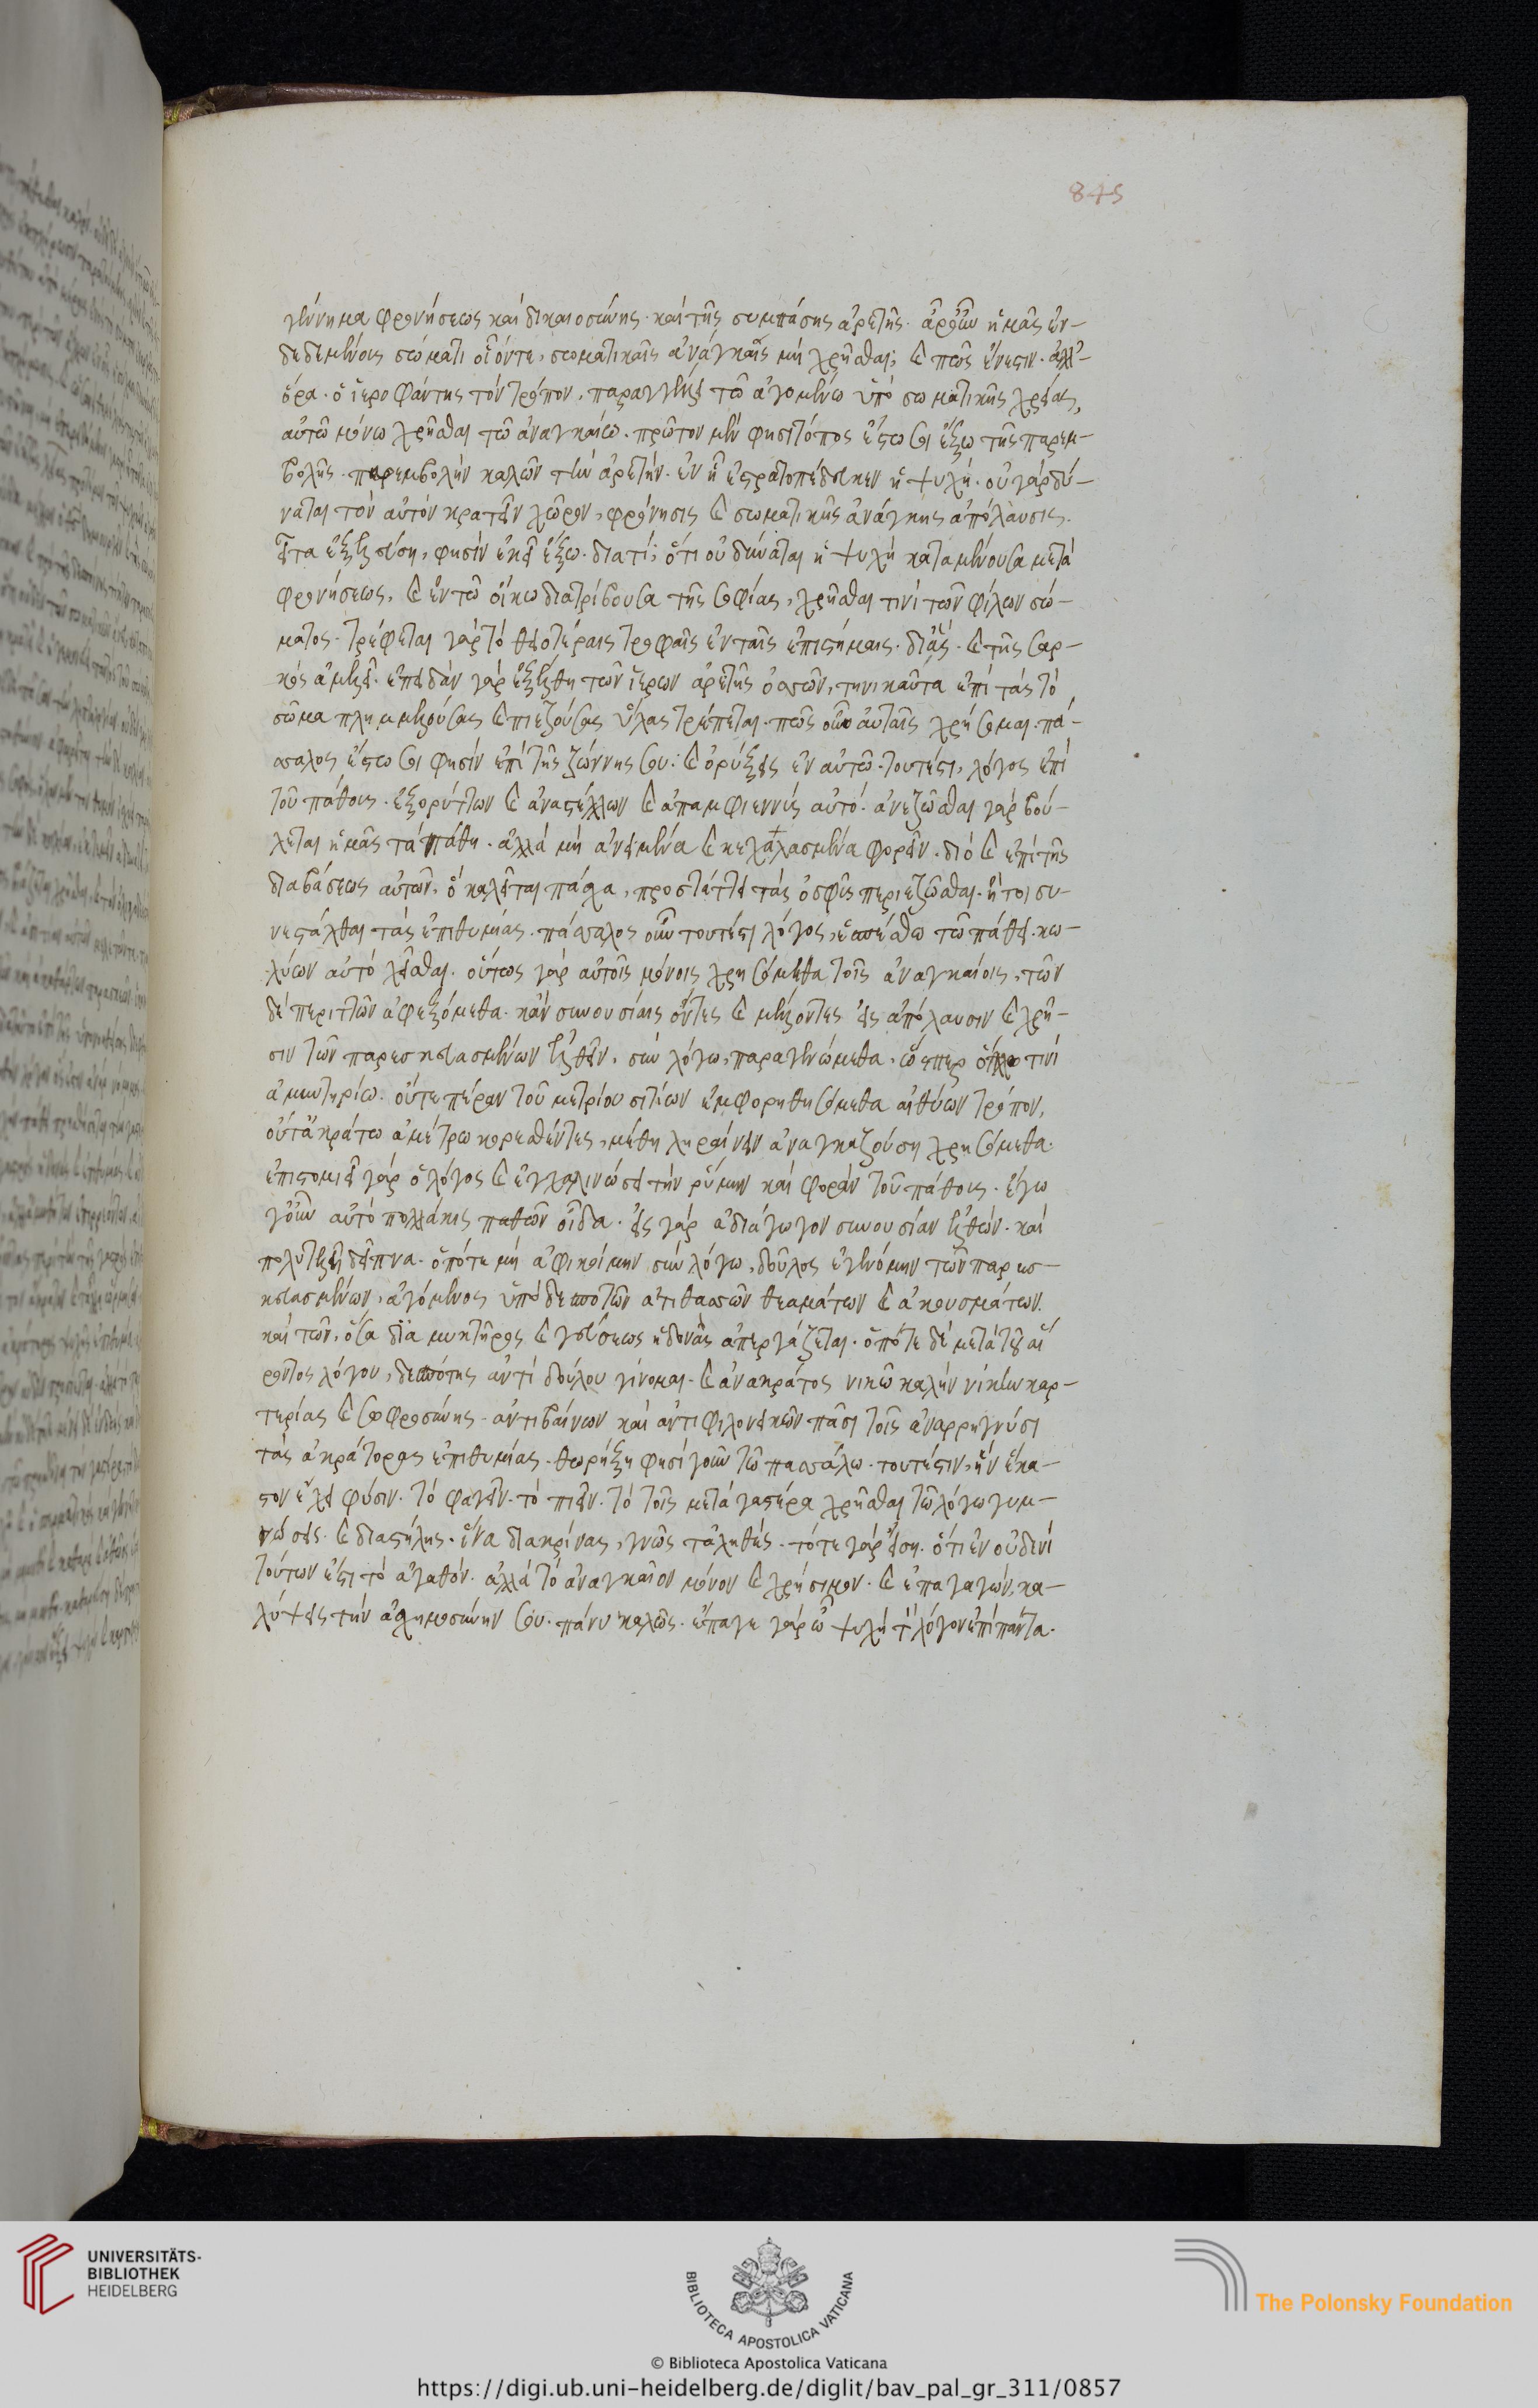 845
γέννημα φρονήσεως καὶ δικαιοσύνης· καὶ τῆς συμπάσης ἀρετῆς. ἆρ' οὖν ἡμᾶς ἐν-
δεδεμένους σώματι οἷόντε, σωματικαῖς ἀνάγκαις μὴ χρῆσθαι; καὶ πῶς ἔνεστιν. ἀλλ'-
ὅρα. ὁ ἱεροφάντης τὸν τρόπον, παραγγέλλει τῶ ἀγομένω ὑπὸ σωματικῆς χρείας,
αὐτῶ μόνω χρῆσθαι τῶ ἀναγκαίω. πρῶτον μέν φησι τόπος ἔστω σοι ἔξω τῆς παρεμ-
βολῆς. παρεμβολὴν καλῶν τὴν ἀρετήν. ἐν ᾗ ἐστρατοπέδευκεν ἡ ψυχή. οὐ γὰρ δύ-
ναται τὸν αὐτὸν κρατεῖν χῶρον, φρόνησις καὶ σωματικῆς ἀνάγκης ἀπόλαυσις.
εἶτα ἐξελεύση, φησὶν ἐκεῖ ἔξω. διατί; ὅτι οὐ δύναται ἡ ψυχὴ καταμένουσα μετὰ
φρονήσεως, καὶ ἐν τῶ οἴκω διατρίβουσα τῆς σοφίας, χρῆσθαι τινὶ τῶν φίλων σώ-
ματος. τρέφεται γὰρ τὸ θειοτέραις τροφαῖς ἐν ταῖς ἐπιστήμαις. δι' ἃς καὶ τῆς σαρ-
κὸς ἀμελεῖ. ἐπειδὰν γὰρ ἐξέλθη τῶν ἱερῶν ἀρετῆς οἴκων, τηνικαῦτα ἐπὶ τὰς τὸ
σῶμα πλημμελούσας καὶ πιεζούσας ὕλας τρέπεται. πῶς οὖν αὐταῖς χρήσομαι. πά-
σσαλος ἔστω σοι φησὶν ἐπὶ τῆς ζώννης σου: καὶ ὀρύξεις ἐν αὐτῶ. τουτέστι, λόγος ἐπὶ
τοῦ πάθους. ἐξορύττων καὶ ἀναστέλλων καὶ ἀπαμφιεννὺς αὐτό. ἀνεζῶσθαι γὰρ βού-
λεται ἡμᾶς τὰ πάθη. ἀλλὰ μὴ ἀνειμένα καὶ κεχαλασμένα φορεῖν. διὸ καὶ ἐπὶ τῆς
διαβάσεως αὐτῶν, ὃ καλεῖται πάσχα, προστάττει τὰς ὀσφῦς περιεζῶσθαι. ἤτοι συ-
νεστάλθαι τὰς ἐπιθυμίας. πάσσαλος οὖν τουτέστι λόγος, ἑπέσθω τῶ πάθει. κω-
λύων αὐτὸ χεῖσθαι. οὕτως γὰρ αὐτοῖς μόνοις χρησόμεθα τοῖς ἀναγκαίοις, τῶν
δὲ περιττῶν ἀφεξόμεθα. κἂν συνουσίαις ὄντες καὶ μέλλοντες εἰς ἀπόλαυσιν καὶ χρῆ-
σιν τῶν παρεσκευασμένων ἐλθεῖν, σὺν λόγω, παραγενώμεθα, ὥσπερ ὅπλω τινὶ
ἀμυντηρίω. οὔτε πέραν τοῦ μετρίου σιτίων ἐμφορηθησόμεθα αἰθύων τρόπον,
οὔτ' ἀκράτω ἀμέτρω κορεσθέντες, μέθη ληραίνειν ἀναγκαζούση χρησόμεθα.
ἐπιστομιεῖ γὰρ ὁ λόγος καὶ ἐγχαλινώσει τὴν ρύμην καὶ φορὰν τοῦ πάθους. ἐγὼ
γοῦν αὐτὸ πολλάκις παθὼν οἶδα. εἰς γὰρ ἀδιάγωγον συνουσίαν ἐλθών. καὶ
πολυτελῆ δεῖπνα. ὁπότε μὴ ἀφικοίμην σὺν λόγω, δοῦλος ἐγενόμην τῶν παρεσ-
κευασμένων, ἀγόμενος ὑπὸ δεσποτῶν ἀτιθασσῶν θεαμάτων καὶ ἀκουσμάτων.
καὶ τῶν, ὅσα διὰ μυκτῆρος καὶ γεύσεως ἡδονὰς ἀπεργάζεται. ὁπότε δὲ μετὰ τοῦ αἱ-
ροῦντος λόγου, δεσπότης ἀντὶ δούλου γίνομαι. καὶ ἀνακράτος νικῶ καλὴν νίκην καρ-
τερίας καὶ σωφροσύνης. ἀντιβαίνων καὶ ἀντιφιλονεικῶν πᾶσι τοῖς ἀναρρηγνύσι
τὰς ἀκράτορας ἐπιθυμίας. θωρήξη φησὶ γοῦν τῶ πασσάλω. τουτέστιν, ἣν ἕκα-
στον ἔχει φύσιν. τὸ φαγεῖν. τὸ πιεῖν. τὸ τοῖς μετὰ γαστέρα χρῆσθαι τῶ λόγω γυμ-
νώσεις. καὶ διαστήλης. ἵνα διακρίνας, γνῶς τἀληθές. τότε γὰρ εἴση. ὅτι ἐν οὐδενὶ
τούτων ἐστὶ τὸ ἀγαθόν. ἀλλὰ τὸ ἀναγκαῖον μόνον καὶ χρήσιμον. καὶ ἐπαγαγών, κα-
λύψεις τὴν ἀσχημοσύνην σου. πάνυ καλῶς. ἔπαγε γὰρ ὦ ψυχὴ τὸν λόγον ἐπὶ πάντα.
UNIVERSITÄTS-
BIBLIOTHEK
HEIDELBERG
BIBLIOTECA APOSTOLICA VATICANA
The Polonsky Foundation
© Biblioteca Apostolica Vaticana
https://digi.ub.uni-heidelberg.de/diglit/bav_pal_gr_311/0857